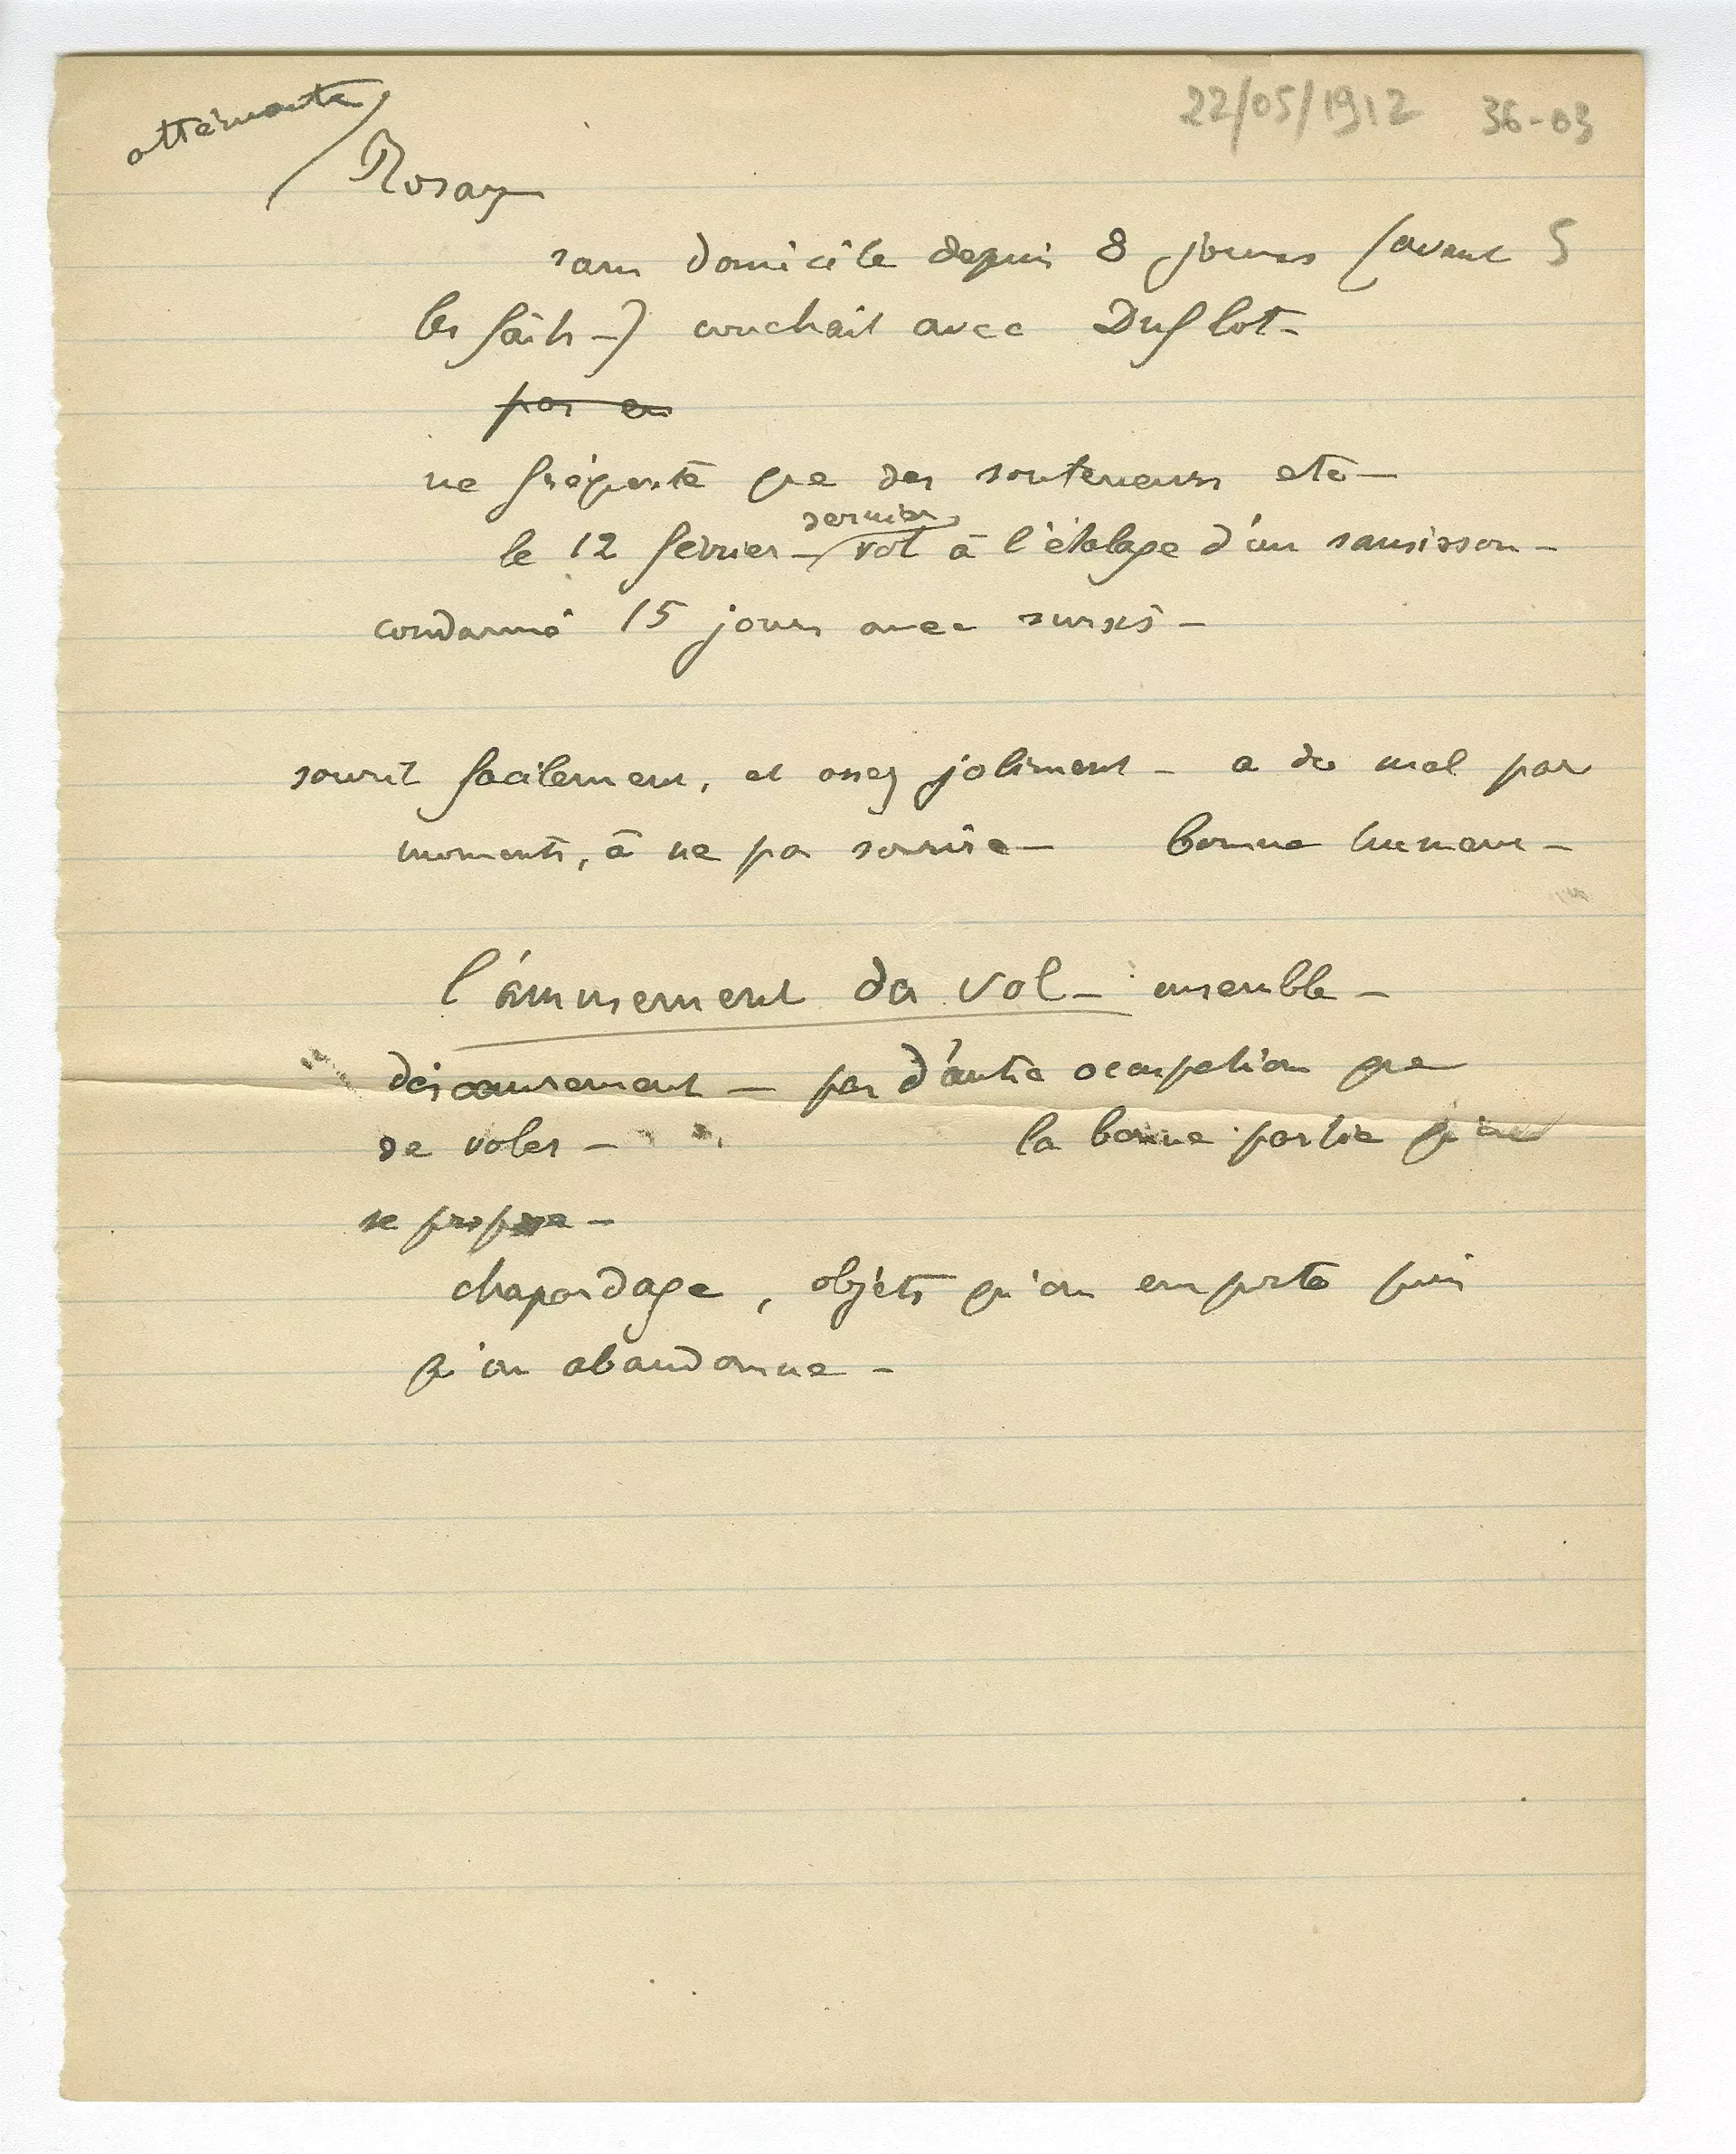 atténuante
22/05/1912 36-03
Rosay
sans domicile depuis 8 jours (avant 5
les faits -) couchait avec Duflot -
pas en
ne fréquente que des souteneurs etc -
dernier
le 12 février - vol à l'étalage d'un saucisson -
condamné 15 jours avec sursis -
sourit facilement, et assez joliment - a du mal par
moments, à ne pas sourire - bonne humeur -
l'amusement du vol - ensemble -
désœuvrement - pas d'autre occupation que
de voler - la bonne partie qu'on
se propose -
chapardage, objets qu'on emporte puis
qu'on abandonne -